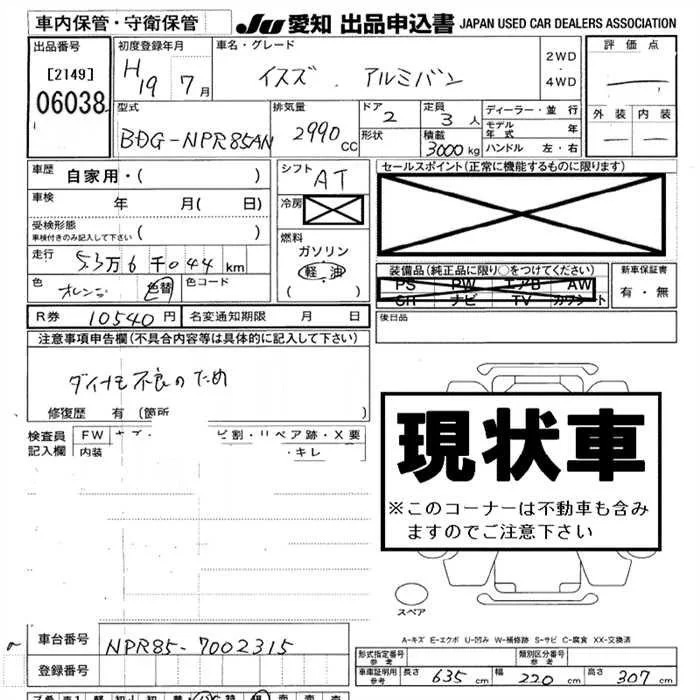 車内保管・守衛保管 JU 愛知 出品申込書 JAPAN USED CAR DEALERS ASSOCIATION
出品番号 初度登録年月 車名・グレード 評価点
[2149] H19 7月 イスズ アルミバン 2WD・4WD
06038 外装 内装
型式 排気量 ドア 定員 ディーラー・並行
BDG-NPR85AN 2990 CC 2 3人 モデル年式 年
形状 積載 3000kg ハンドル 左・右
車歴 自家用・( ) シフト AT セールスポイント(正常に機能するものに限ります)
車検 年 月( 日) 冷房
受検形態
車検付きのみ記入して下さい ( ) 燃料
ガソリン
走行 5.3万6千044km 軽・油
( )
装備品(純正品に限り○をつけてください) 新車保証書
PS PW エアB AW 有・無
ナビ TV
色 オレンジ 色替 色コード
R券 10540円 名変通知期限 月 日 後日品
注意事項申告欄(不具合内容等は具体的に記入して下さい)
ダイナモ不良のため
修復歴 有(箇所 )
検査員 FW
記入欄 内装 ・キレ
現状車
※このコーナーは不動車も含み
ますのでご注意下さい
スペア
A-キズ E-エクボ U-凹み W-補修跡 S-サビ C-腐食 XX-交換済
車台番号 NPR85-7002315 形式指定番号 参考 類別区分番号 参考
登録番号 車庫証明用 参考 長さ 635cm 幅 220cm 高さ 307cm